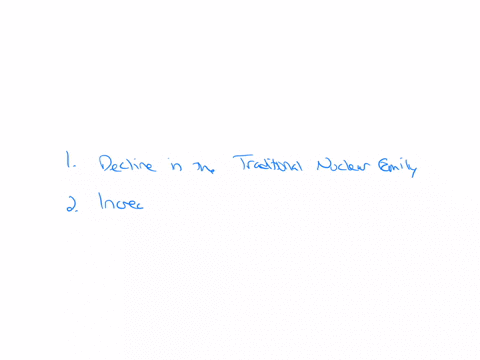 1. Decline in the Traditional Nuclear Emily
2. Increc